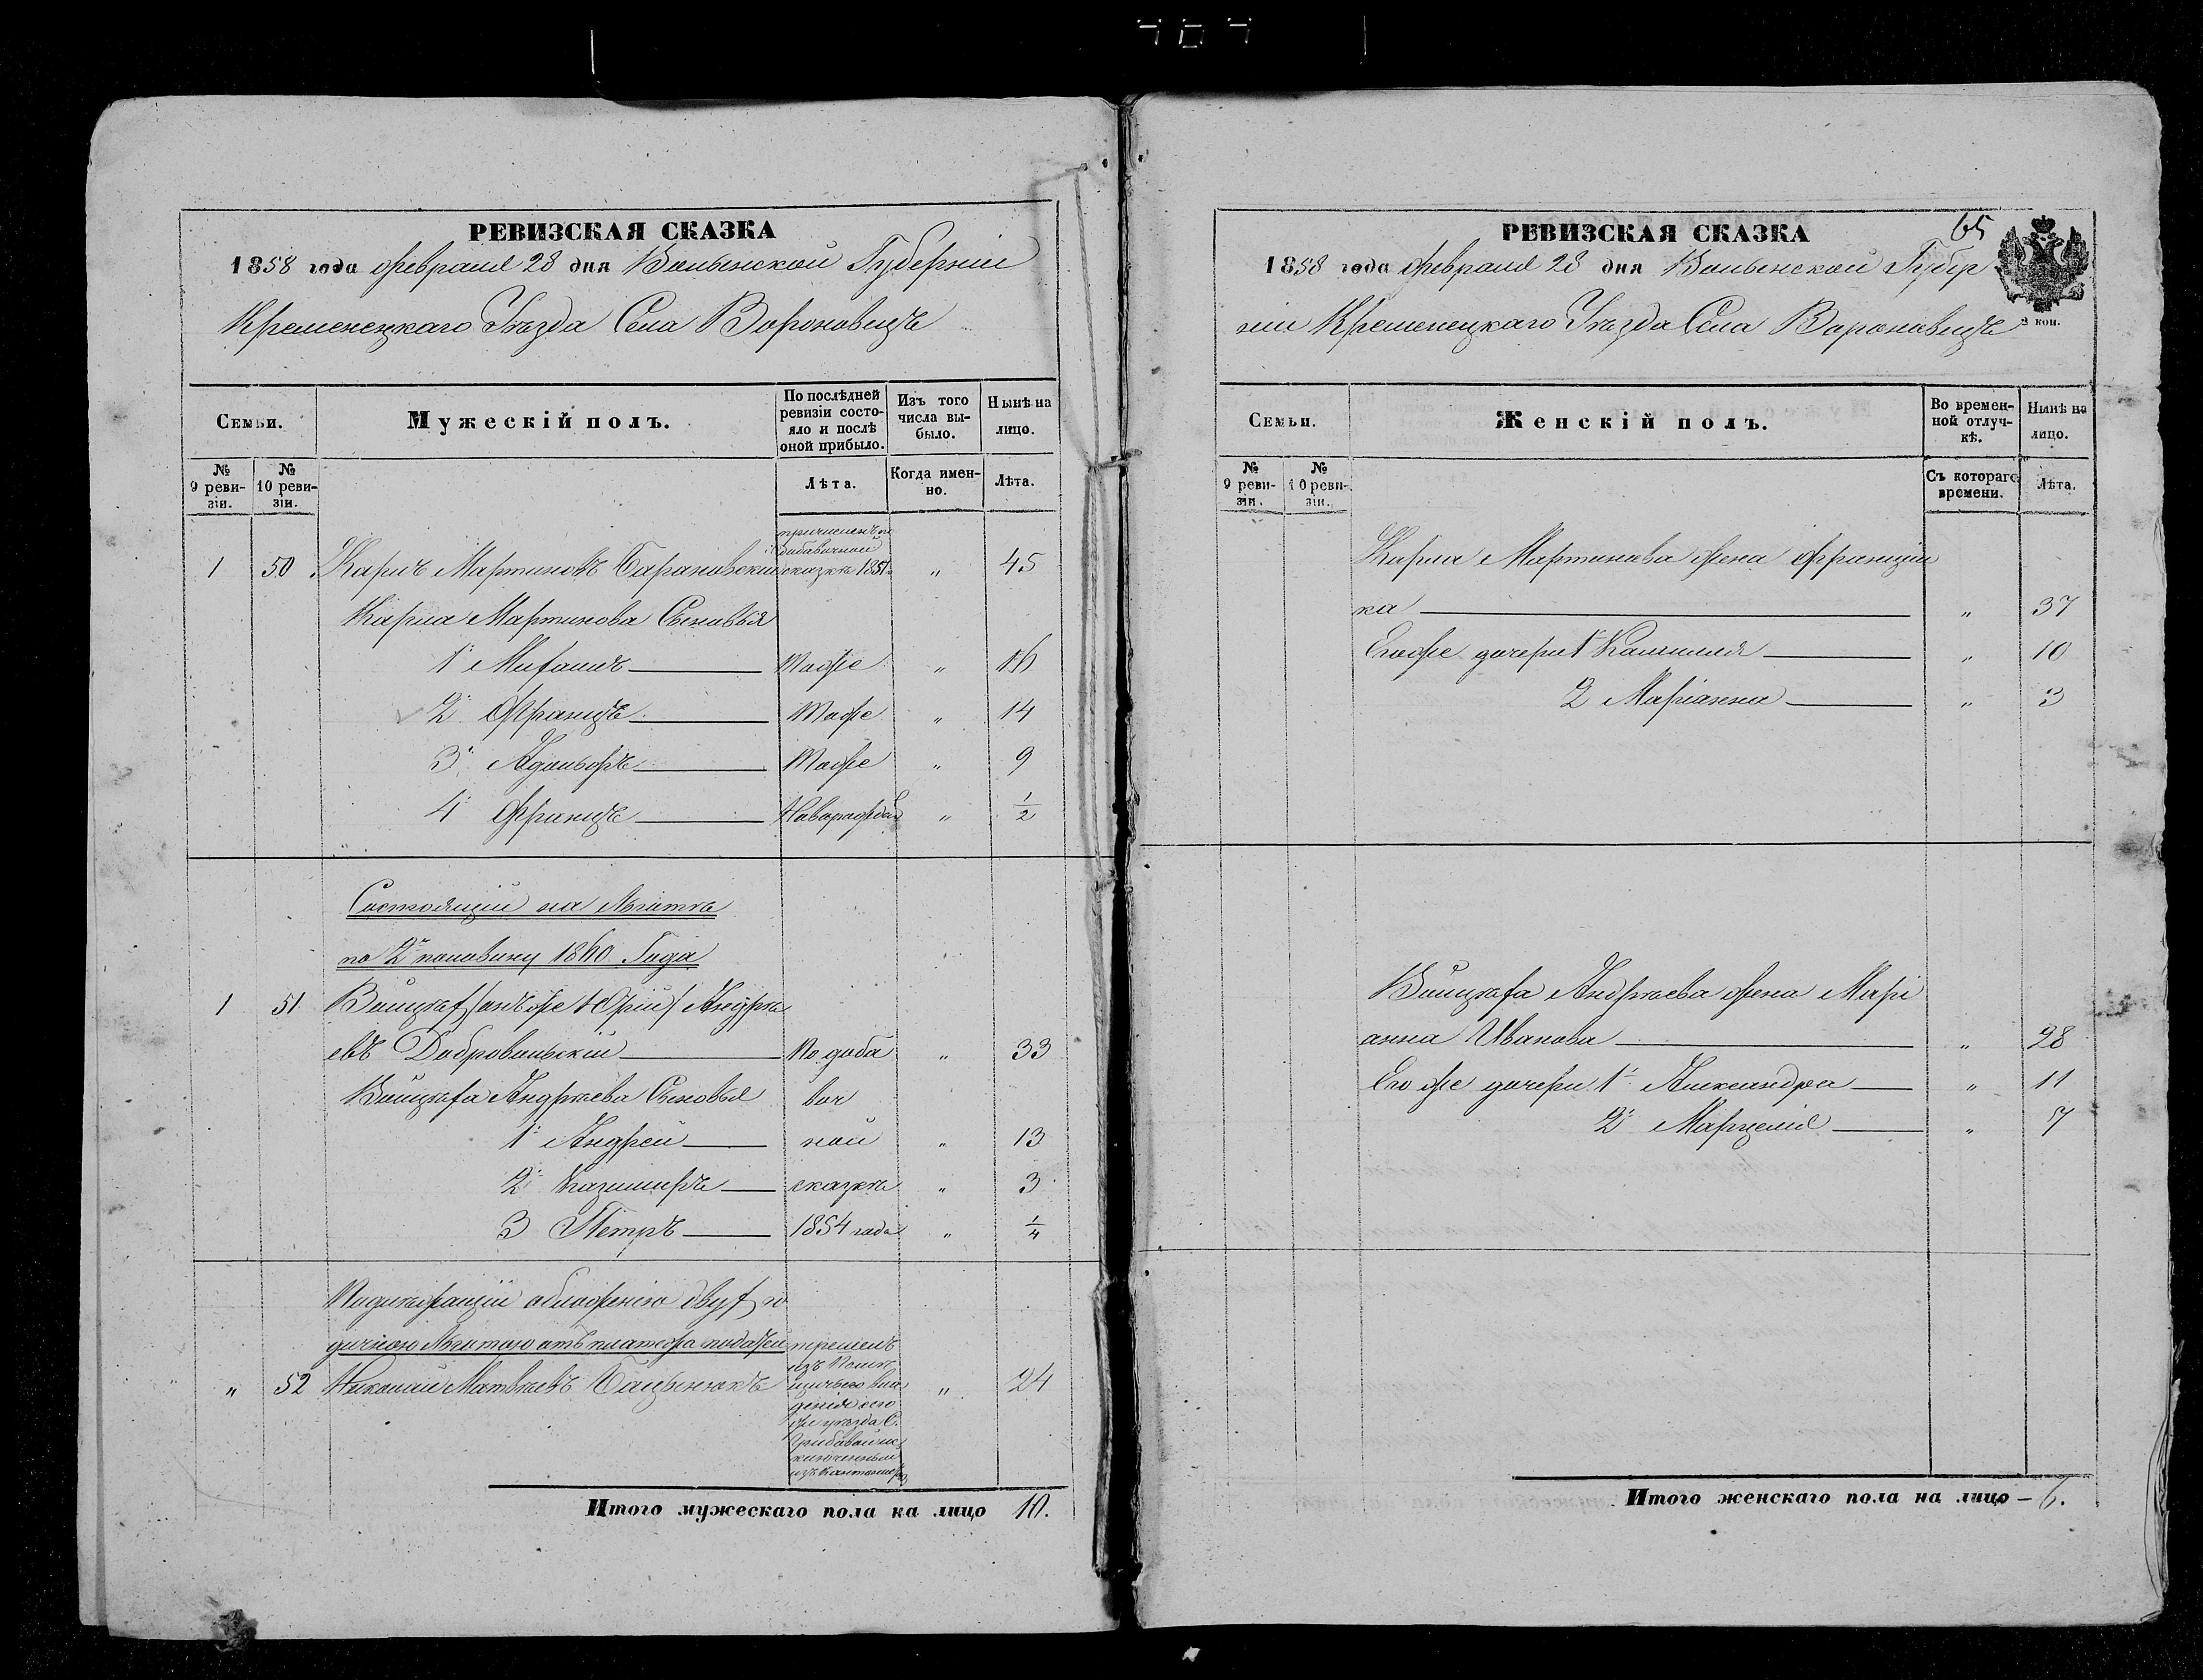 РЕВИЗСКАЯ СКАЗКА
1858 года февраля 28 дня Волынской Губерніи
Кременецкаго Уѣзда Села Вороновецъ
Семьи.
Мужескій полъ.
По послѣдней ревизіи состояло и послѣ оной прибыло.
Изъ того числа выбыло.
Нынѣ на лицо.
№ 9 ревизіи.
№ 10 ревизіи.
Лѣта.
Когда именно.
Лѣта.
причисленъ по
добавочной
1 50 Карлъ Мартиновъ Барановскій сказкѣ 1851 " 45
Карла Мартинова Сыновья
1й Михаилъ Тоже " 16
2й Францъ Тоже " 14
3й Адольфъ Тоже " 9
4й Францъ Новорожден " 1/2
Состоящій на Льготѣ
по 2ю половину 1860 Года
1 51 Войцехъ /онъ же Юрій/ Андрѣ
евъ Добровольскій По доба " 33
Войцеха Андрѣева Сыновья воч
1й Андрей ной " 13
2й Казимиръ сказкѣ " 3
3 Петръ 1854 года " 1/4
Подлежащій обложенію двух го
дичною Льготою отъ платежа податей
перешелъ
изъ Помѣ
" 52 Николай Матвѣевъ Бацынюкъ щичьего вла " 24
денія сего
же уѣзда С.
Итого мужескаго пола на лицо 10.
РЕВИЗСКАЯ СКАЗКА
65
1858 года февраля 28 дня Волынской Губер
ніи Кременецкаго Уѣзда Села Вороновецъ
2 коп.
Семьи.
Женскій полъ.
Во временной отлучкѣ.
Нынѣ на лицо.
№ 9 ревизіи.
№ 10 ревизіи.
Съ котораго времени.
Лѣта.
Карла Мартинова жена Франциш
ка " 37
Егоже дочери 1 Камилія " 10
2 Маріанна " 3
Войцеха Андрѣева жена Марі
анна Иванова " 28
Его же дочери 1я Александра " 11
2я Марцелія " 7
Итого женскаго пола на лицо – 6.